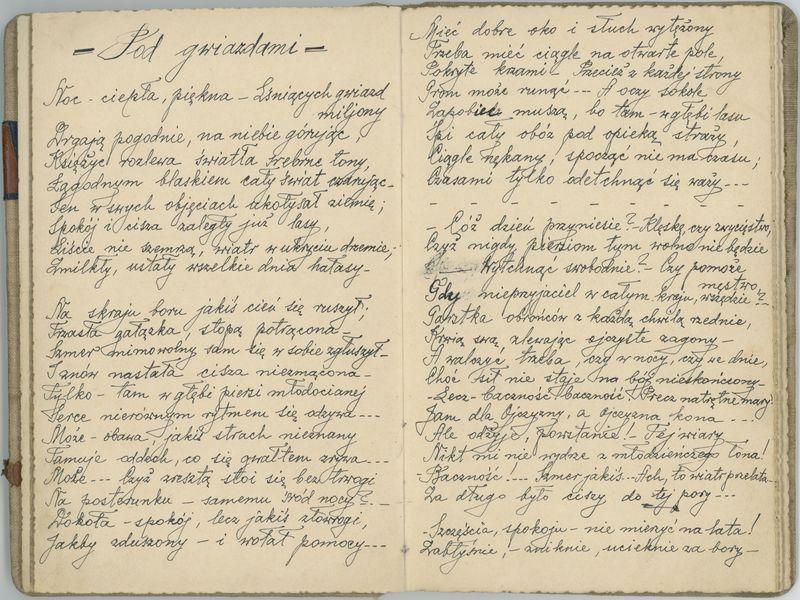 – Pod gwiazdami –
Noc - ciepła, piękna – Lśniących gwiazd
miljony
Drgają pogodnie, na niebie górując,
Księżyc rozlewa światła srebrne tony,
Łagodnym blaskiem cały świat czarując –
Sen w swych objęciach ukołysał ziemię;
Spokój i cisza zaległy już lasy,
Liście nie szemrzą, wiatr w ukryciu drzemie,
Zmilkły, ustały wszelkie dnia hałasy –
Na skraju boru jakiś cień się ruszył,
Trzasła gałązka, stopą potrącona –
Szmer mimowolny sam się w sobie zgłuszył –
I znów nastała cisza niezmącona –
Tylko – tam w głębi piersi młodocianej
Serce nierównym rytmem się odzywa ---
Może – obawa, jakiś strach nieznany
Tamuje oddech, co się gwałtem zrywa ---
Może --- Czyż zresztą stoi się bez trwogi
Na posterunku – samemu śród nocy? –
Dokoła – spokój, lecz jakiś złowrogi,
Jakby zduszony – i wołał pomocy ---
Mieć dobre oko i słuch wytężony
Trzeba mieć ciągle na otwarte pole,
Pokryte krzami! – Przecież z każdej strony
Grom może runąć! --- A oczy sokole
Zapobiec muszą, bo tam – w głębi lasu
Śpi cały obóz pod opieką straży,
Ciągle nękany, spocząć nie ma czasu;
Czasami tylko odetchnąć się waży ---
– – – – – – – – –
– Cóż dzień przyniesie? – Klęskę czy zwycięstwo,
Czyż nigdy piersiom tym wolno nie będzie
Wytchnąć swobodnie? – Czy pomoże
męstwo,
Gdy nieprzyjaciel w całym kraju, wszędzie?
Garstka obrońców z każdą chwilą rzednie,
Krwią swą zlewając ojczyste zagony –
A walczyć trzeba, czy w nocy, czy we dnie,
Choć sił nie staje na bój nieskończony –
– Lecz – Baczność! Baczność! Precz natrętne mary
Jam dla Ojczyzny, a ojczyzna kona ---
Ale ożyje, powstanie! – Tej wiary
Nikt mi nie wydrze z młodzieńczego łona!
– Baczność! --- Szmer jakiś -- Ach, to wiatr przelata –
Za długo było ciszy do tej pory ---
– Szczęścia, spokoju – nie mierzyć na lata!
Zabłyśnie, – zniknie, ucieknie za bory –